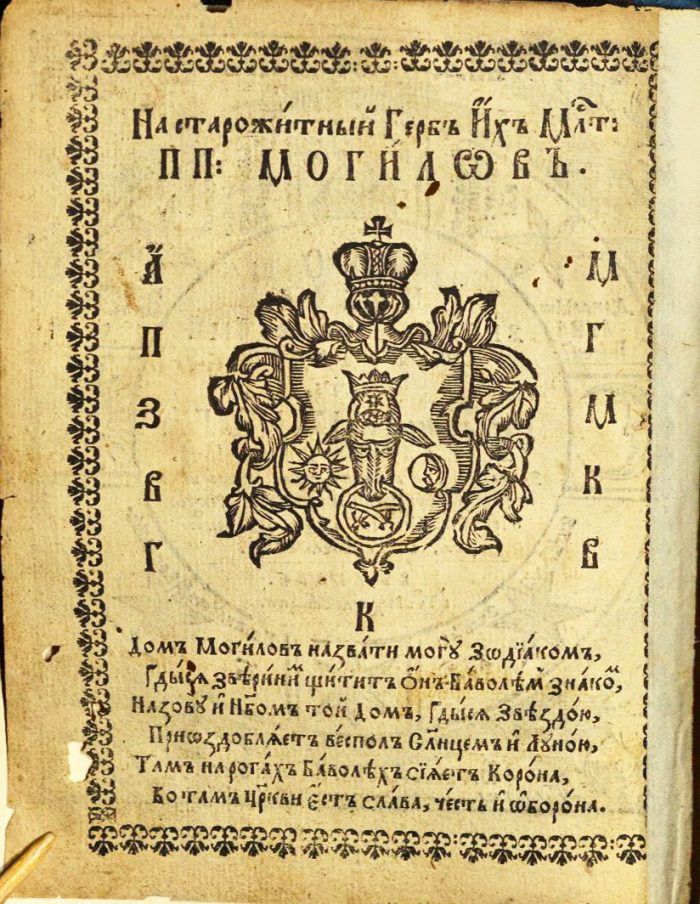 На старожи́тный Гербъ И҆́хъ Млⷭ҇т:
ПП: МОГИ́ЛѠВЪ.
А҆́ М
П Г
З М
В К
Г В
К
Домъ Моги́ловъ назва́ти могꙋ̀ Зѡдїа́комъ,
Гды́ся звѣри́ниⷨ щи́титъ ѻ҆́нъ Ба́волеⷨ знакоⷨ,
Назовꙋ̀ и҆ Нб҃омъ той Домъ, Гды́ся Звѣздо́ю,
Приѡздобля́етъ ве́спол Сл҃нцемъ и҆ Лꙋно́ю,
Та́мъ на рога́хъ Ба́волѣхъ сїѧ́етъ Коро́на,
Бо та́мъ Цр҃кви е҆́стъ сла́ва, че́сть и҆ ѡ҆боро́на.